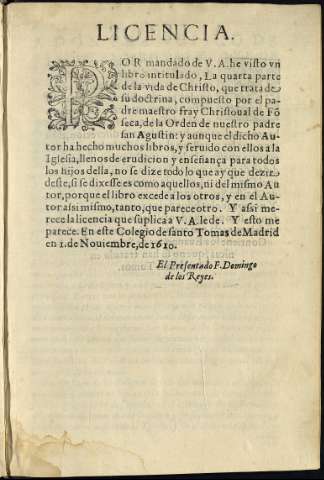 LICENCIA.
POR mandado de V. A. he visto vn
libro intitulado, La quarta parte
de la vida de Christo, que trata de
su doctrina, compuesto por el pa-
dre maestro fray Christoual de Fõ
seca, de la Orden de nuestro padre
san Agustin: y aunque el dicho Au-
tor ha hecho muchos libros, y seruido con ellos a la
Iglesia, llenos de erudicion y enseñança para todos
los hijos della, no se dize todo lo que ay que dezir
deste, si se dixesse es como aquellos, ni del mismo Au
tor, porque el libro excede a los otros, y en el Au-
tor assi mismo, tanto, que parece otro. Y assi me-
rece la licencia que suplica a V. A. le de. Y esto me
parece. En este Colegio de santo Tomas de Madrid
en 1. de Nouiembre, de 1610.
El Presentado F. Domingo
de los Reyes.